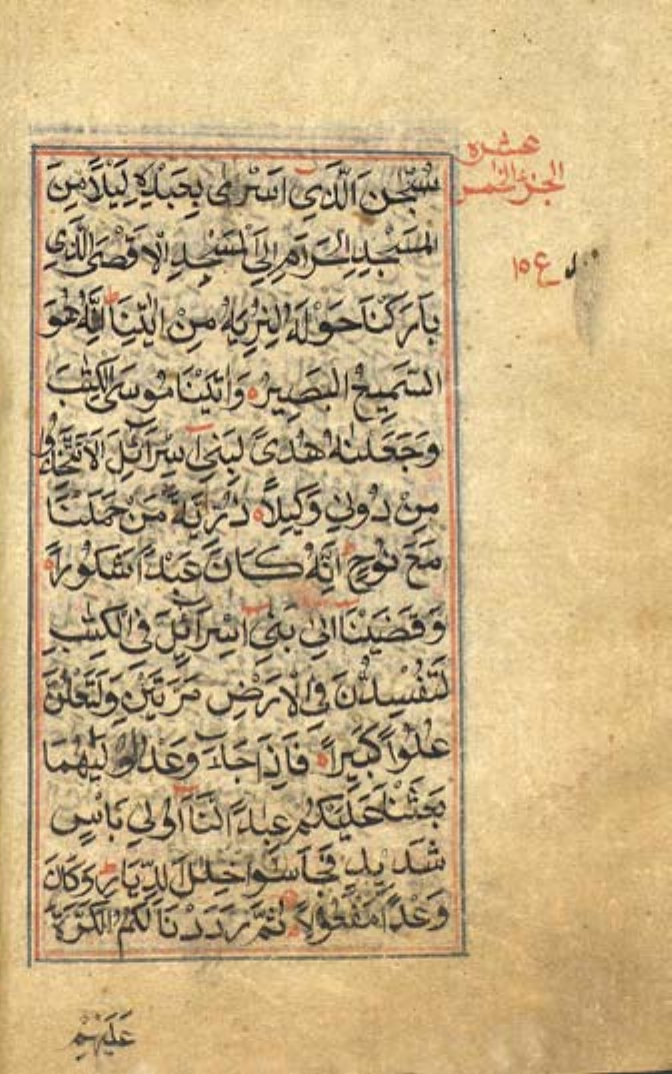 سُبْحٰنَ الَّذِي اَسْرٰى بِعَبْدِهٖ لَيْلًا مِنَ
المَسْجِدِ الْحَرَامِ اِلَى الْمَسْجِدِ الْاَقْصَى الَّذِي
بَارَكْنَا حَوْلَهٗ لِنُرِيَهٗ مِنْ اٰيٰتِنَا اِنَّهٗ هُوَ
السَّمِيعُ الْبَصِيرُ وَاٰتَيْنَا مُوسَى الْكِتٰبَ
وَجَعَلْنٰهُ هُدًى لِبَنِي اِسْرَآئِلَ اَلَّا تَتَّخِذُوا
مِنْ دُونِي وَكِيلًا ذُرِّيَّةَ مَنْ حَمَلْنَا
مَعَ نُوحٍ اِنَّهٗ كَانَ عَبْدًا شَكُورًا
وَقَضَيْنَا اِلٰى بَنِي اِسْرَآئِلَ فِي الْكِتٰبِ
لَتُفْسِدُنَّ فِي الْاَرْضِ مَرَّتَيْنِ وَلَتَعْلُنَّ
عُلُوًّا كَبِيرًا فَاِذَا جَآءَ وَعْدُ اُولٰيهُمَا
بَعَثْنَا عَلَيْكُمْ عِبَادًا لَنَا اُولِي بَاْسٍ
شَدِيدٍ فَجَاسُوا خِلٰلَ الدِّيَارِ وَكَانَ
وَعْدًا مَفْعُولًا ثُمَّ رَدَدْنَا لَكُمُ الْكَرَّةَ
عَلَيْهِمْ
الجزء الخامس
عشره
ع ١٥